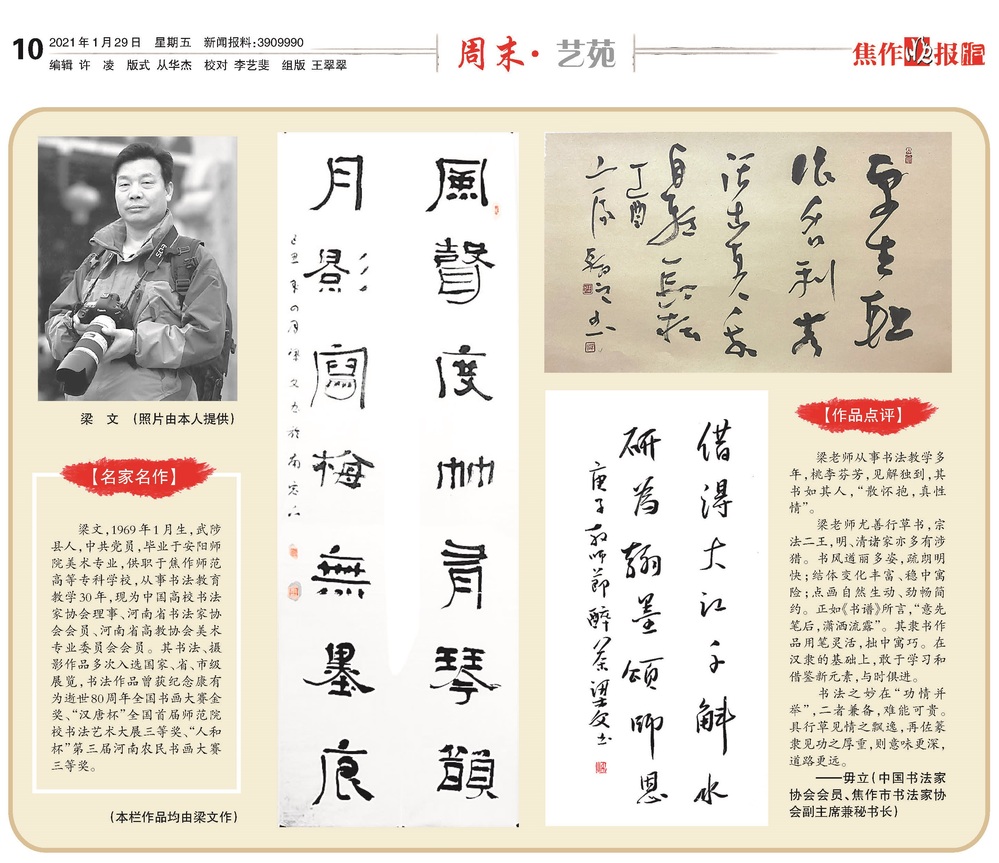 10
2021年1月29日 星期五 新闻报料:3909990
编辑 许 凌 版式 从华杰 校对 李艺斐 组版 王翠翠
周末·艺苑
焦作晚报
梁 文 (照片由本人提供)
【名家名作】
梁文,1969年1月生,武陟
县人,中共党员,毕业于安阳师
院美术专业,供职于焦作师范
高等专科学校,从事书法教育
教学30年,现为中国高校书法
家协会理事、河南省书法家协
会会员、河南省高教协会美术
专业委员会会员。其书法、摄
影作品多次入选国家、省、市级
展览,书法作品曾获纪念康有
为逝世80周年全国书画大赛金
奖、“汉唐杯”全国首届师范院
校书法艺术大展三等奖、“人和
杯”第三届河南农民书画大赛
三等奖。
(本栏作品均由梁文作)
風聲度竹有琴韻
月影寫梅無墨痕
丁酉
借得大江千斛水
研為翰墨頌師恩
庚子教師節醉茶梁文书
【作品点评】
梁老师从事书法教学多
年,桃李芬芳,见解独到,其
书如其人,“散怀抱,真性
情”。
梁老师尤善行草书,宗
法二王,明、清诸家亦多有涉
猎。书风遒丽多姿,疏朗明
快;结体变化丰富、稳中寓
险;点画自然生动、劲畅简
约。正如《书谱》所言,“意先
笔后,潇洒流露”。其隶书作
品用笔灵活,拙中寓巧。在
汉隶的基础上,敢于学习和
借鉴新元素,与时俱进。
书法之妙在“功情并
举”,二者兼备,难能可贵。
具行草见情之飘逸,再佐篆
隶见功之厚重,则意味更深,
道路更远。
——毋立(中国书法家
协会会员、焦作市书法家协
会副主席兼秘书长)